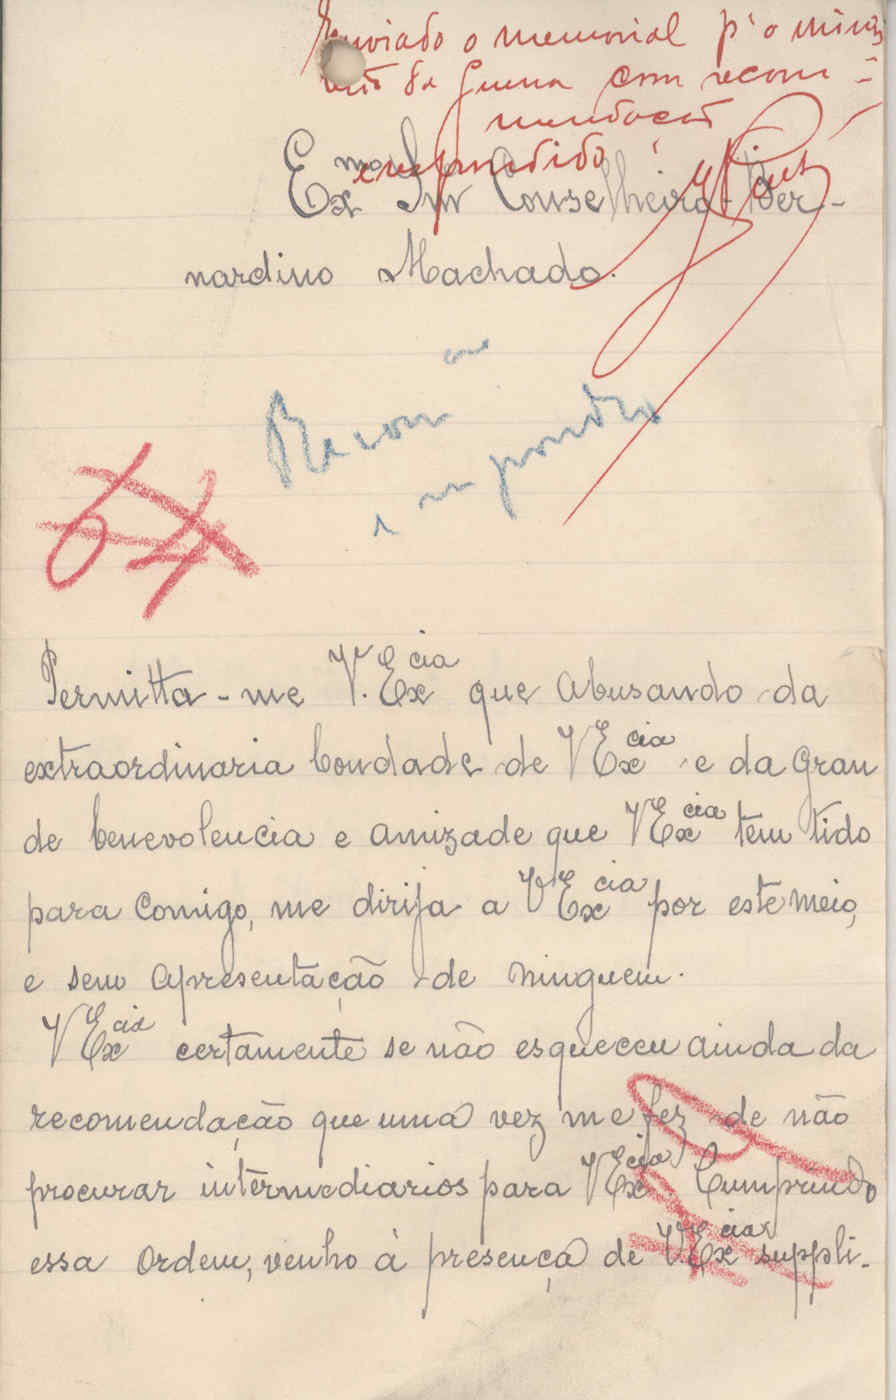 Enviado o memorial p'o minis
terio da Guerra com recom
mendação
e respondido
Ex.mo Snr Conselheiro Ber-
nardino Machado.
Recom
e respondido
Permitta-me V. Ex.cia que abusando da
extraordinaria bondade de V Ex.cia e da gran
de benevolencia e amizade que V Ex.cia tem tido
para comigo, me dirija a V Ex.cia por este meio,
e sem apresentação de ninguem.
V Ex.cia certamente se não esqueceu ainda da
recomendação que uma vez me fez de não
procurar intermediarios para V Ex.cia Cumprindo
essa ordem, venho á presença de V Ex.cia suppli-